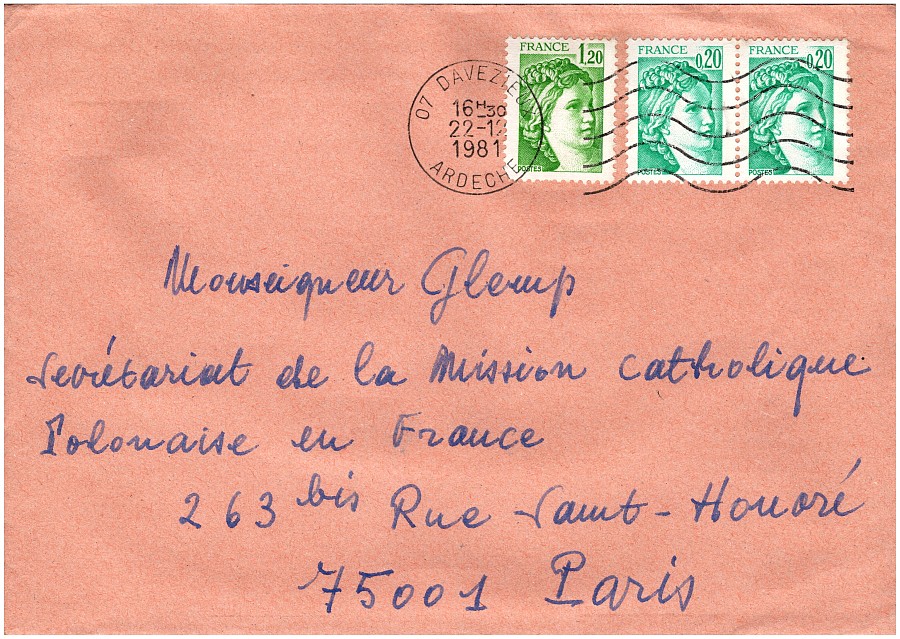 FRANCE 1,20
POSTES
FRANCE 0,20
POSTES
FRANCE 0,20
POSTES
07 DAVEZIEUX
16H30
22-12
1981
ARDECHE
Monseigneur Glemp
Secrétariat de la Mission catholique
Polonaise en France
263 bis Rue Saint-Honoré
75001 Paris